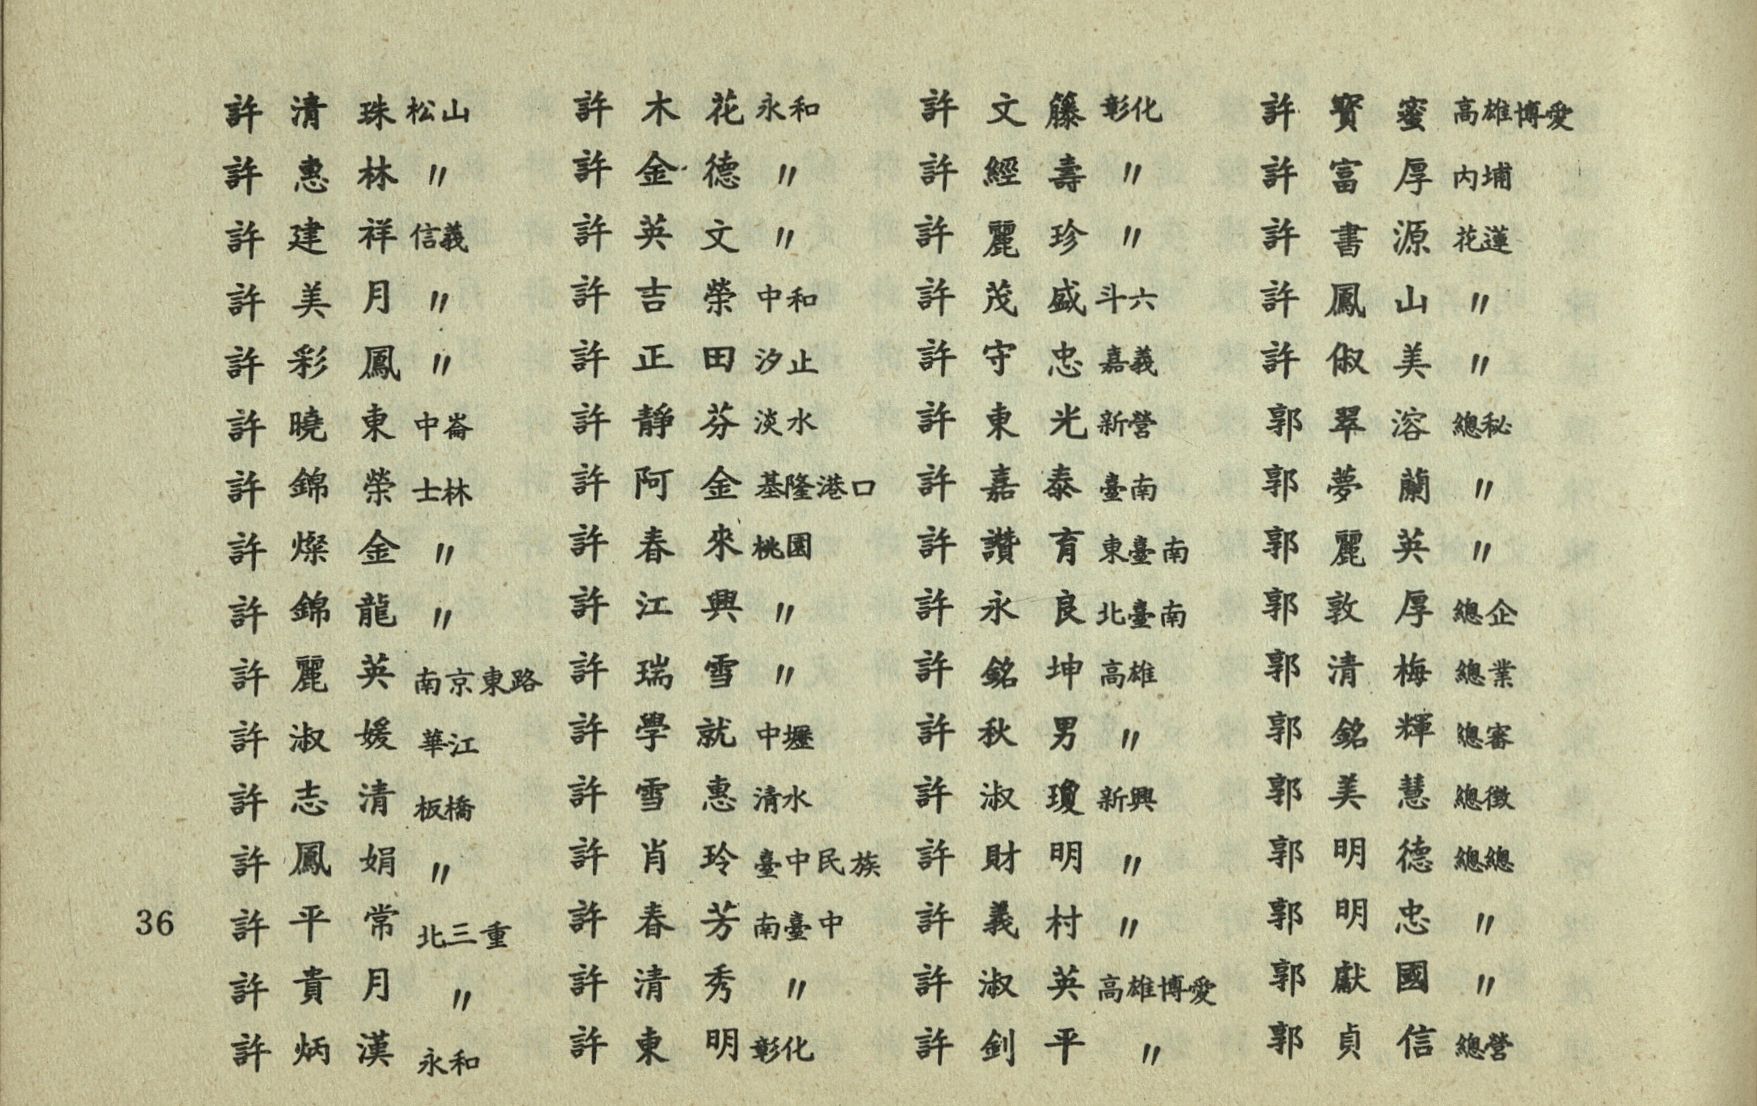 許清珠 松山
許惠林 〃
許建祥 信義
許美月 〃
許彩鳳 〃
許曉東 中崙
許錦榮 士林
許燦金 〃
許錦龍 〃
許麗英 南京東路
許淑媛 華江
許志清 板橋
許鳳娟 〃
許平常 北三重
許貴月 〃
許炳漢 永和
許木花 永和
許金德 〃
許英文 〃
許吉榮 中和
許正田 汐止
許靜芬 淡水
許阿金 基隆港口
許春來 桃園
許江興 〃
許瑞雪 〃
許學就 中壢
許雪惠 清水
許肖玲 臺中民族
許春芳 南臺中
許清秀 〃
許東明 彰化
許文籐 彰化
許經壽 〃
許麗珍 〃
許茂盛 斗六
許守忠 嘉義
許東光 新營
許嘉泰 臺南
許讚育 東臺南
許永良 北臺南
許銘坤 高雄
許秋男 〃
許淑瓊 新興
許財明 〃
許義村 〃
許淑英 高雄博愛
許釗平 〃
許寳蜜 高雄博愛
許富厚 內埔
許書源 花蓮
許鳳山 〃
許俶美 〃
郭翠溶 總秘
郭夢蘭 〃
郭麗英 〃
郭敦厚 總企
郭清梅 總業
郭銘輝 總審
郭美慧 總徵
郭明德 總總
郭明忠 〃
郭獻國 〃
郭貞信 總營
36